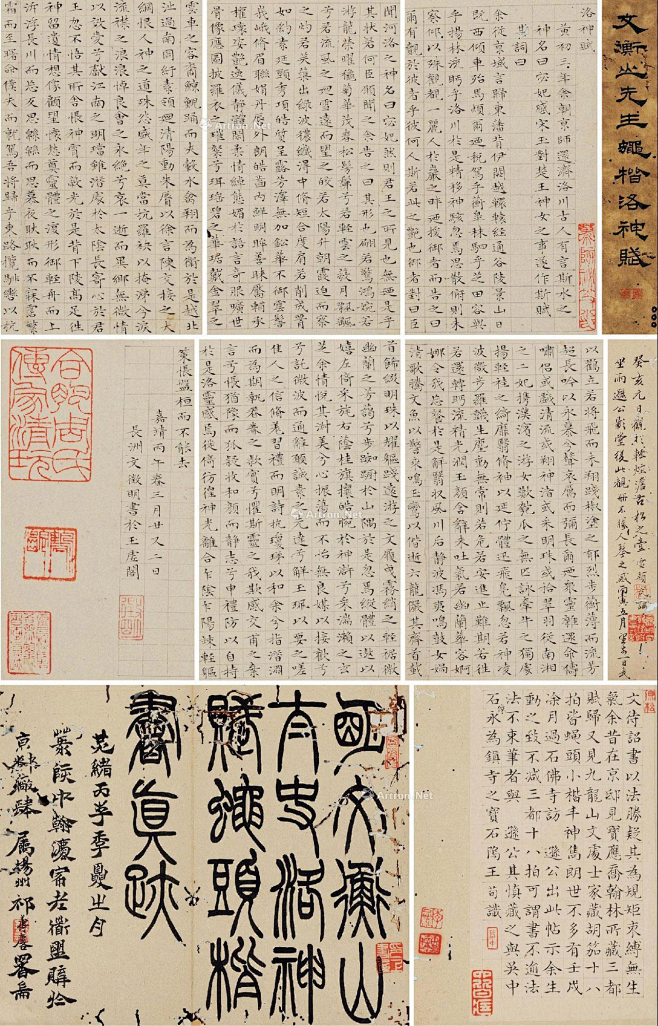 文衡山先生蠅楷洛神賦
洛神賦
黃初三年余朝京師還濟洛川古人有言斯水之
神名曰宓妃感宋玉對楚王神女之事遂作斯賦
其詞曰
余從京域言歸東藩背伊闕越轘轅經通谷陵景山日
既西傾車殆馬煩爾迺稅駕乎蘅皋秣駟乎芝田容與
乎楊林流眄乎洛川於是精移神駭忽焉思散俯則未
察仰以殊觀覩一麗人於巖之畔迺援御者而告之曰
爾有覿於彼者乎彼何人斯若此之艷也御者對曰臣
聞河洛之神名曰宓妃然則君王之所見也無迺是乎
其狀若何臣願聞之余告之曰其形也翩若驚鴻婉若
游龍榮曜秋菊華茂春松髣髴兮若輕雲之蔽月飄颻
兮若流風之迴雪遠而望之皎若太陽升朝霞迫而察
之灼若芙蕖出綠波穠纖得中脩短合度肩若削成腰
如約素延頸秀項皓質呈露芳澤無加鉛華不御雲髻
峩峩脩眉聯娟丹脣外朗皓齒內鮮明眸善睞靨輔承
權瓌姿艷逸儀靜體閑柔情綽態媚於語言奇服曠世
骨像應圖披羅衣之璀粲兮珥瑤碧之華琚戴金翠之
雲車之容裔鯨鯢踊而夾轂水禽翔而為衛於是越北
沚過南岡紆素領迴清陽動朱脣以徐言陳交接之大
綱恨人神之道殊怨盛年之莫當抗羅袂以掩涕兮淚
流襟之浪浪悼良會之永絕兮哀一逝而異鄉無微情
以效愛兮獻江南之明璫雖潛處於太陰長寄心於君
王忽不悟其所舍悵神宵而蔽光於是背下陵高足往
神留遺情想像顧望懷愁冀靈體之復形御輕舟而上
泝浮長川而忘反思緜緜而思慕夜耿耿而不寐霑繁
霜而至曙命僕夫而就駕吾將歸乎東路攬騑轡以抗
癸亥元日觀於
以鶴立若將飛而未翔踐椒塗之郁烈步蘅薄而流芳
超長吟以永慕兮聲哀厲而彌長爾迺衆靈雜遝命儔
嘯侶或戲清流或翔神渚或采明珠或拾翠羽從南湘
之二妃携漢濱之游女歎匏瓜之無匹詠牽牛之獨處
揚輕袿之綺靡翳脩袖以延佇體迅飛鳧飄忽若神凌
波微步羅韈生塵動無常則若危若安進止難期若往
若還轉眄流精光潤玉顏含辭未吐氣若幽蘭華容婀
娜令我忘餐於是屏翳收風川后靜波馮夷鳴鼓女媧
清歌騰文魚以警乘鳴玉鸞以偕逝六龍儼其齊首載
首飾綴明珠以耀軀踐遠遊之文履曳霧綃之輕裾微
幽蘭之芳藹兮步踟躕於山隅於是忽焉縱體以遨以
嬉左倚采旄右蔭桂旗攘皓腕於神滸兮采湍瀨之玄
芝余情悅其淑美兮心振蕩而不怡無良媒以接歡兮
託微波而通辭願誠素之先達兮解玉珮以要之嗟
佳人之信脩羌習禮而明詩抗瓊珶以和余兮指潛淵
而為期執眷眷之款實兮懼斯靈之我欺感交甫之棄
言兮悵猶豫而狐疑收和顏而靜志兮申禮防以自持
於是洛靈感焉徙倚彷徨神光離合乍陰乍陽竦輕軀
策悵盤桓而不能去
嘉靖丙午春三月廿又二日
長洲文徵明書於玉磬閣
文待詔書以法勝疑其為規矩束縛無生
氣余昔在京邸見寶應喬翰林所藏三都
賦歸又見九龍山文處士家藏胡笳十八
拍皆蠅頭小楷丰神雋朗世不多有壬戌
涂月過石佛寺訪 遯公出此帖示余生
動之致不減三都十八拍可謂書不適法
法不束筆者與 遯公其慎藏之與吳中
石永為鎮寺之寶石隖王苟識
明文衡山
大史洛神
賦蠅頭楷
書真跡
光緒丙子季夏之月